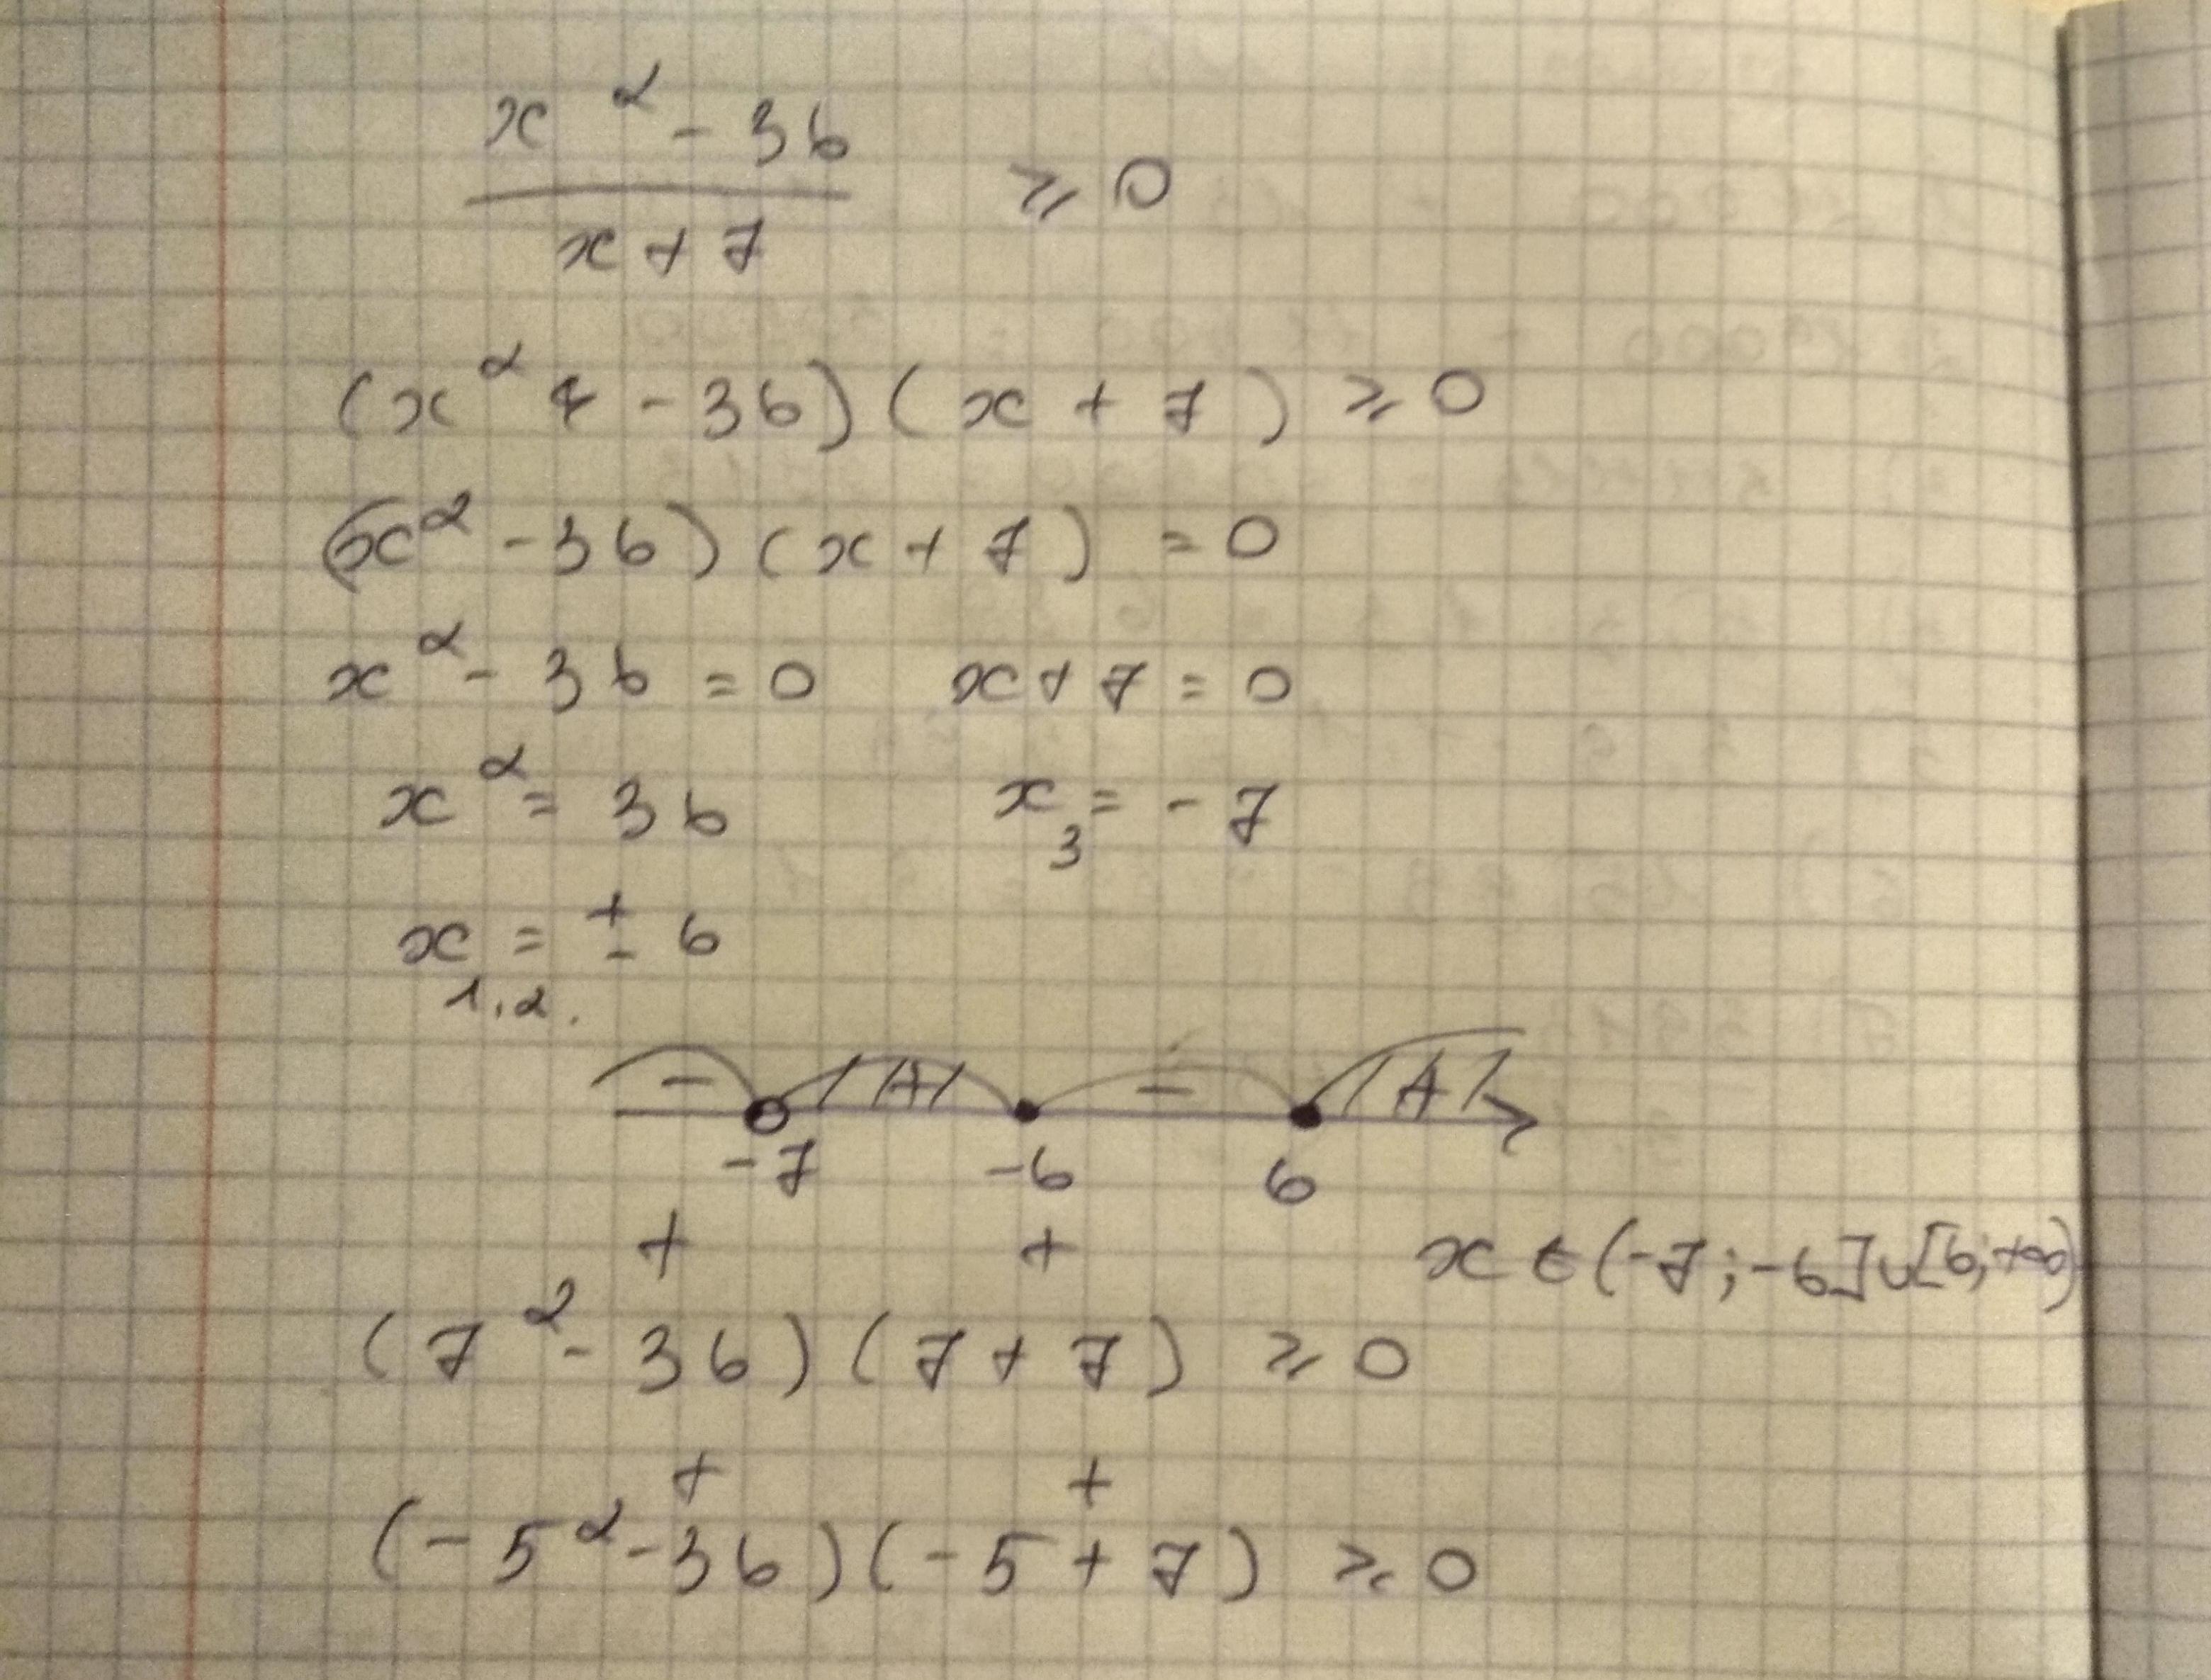 x² - 36
x + 7
≥ 0
(x² - 36)(x + 7) ≥ 0
(x² - 36)(x + 7) = 0
x² - 36 = 0 x + 7 = 0
x² = 36 x₃ = - 7
x₁,₂. = ± 6
- + - +
-7 -6 6
+ +
x ∈ (-7; -6] ∪ [6; +∞)
(7² - 36)(7 + 7) ≥ 0
+ +
(-5² - 36)(-5 + 7) ≥ 0